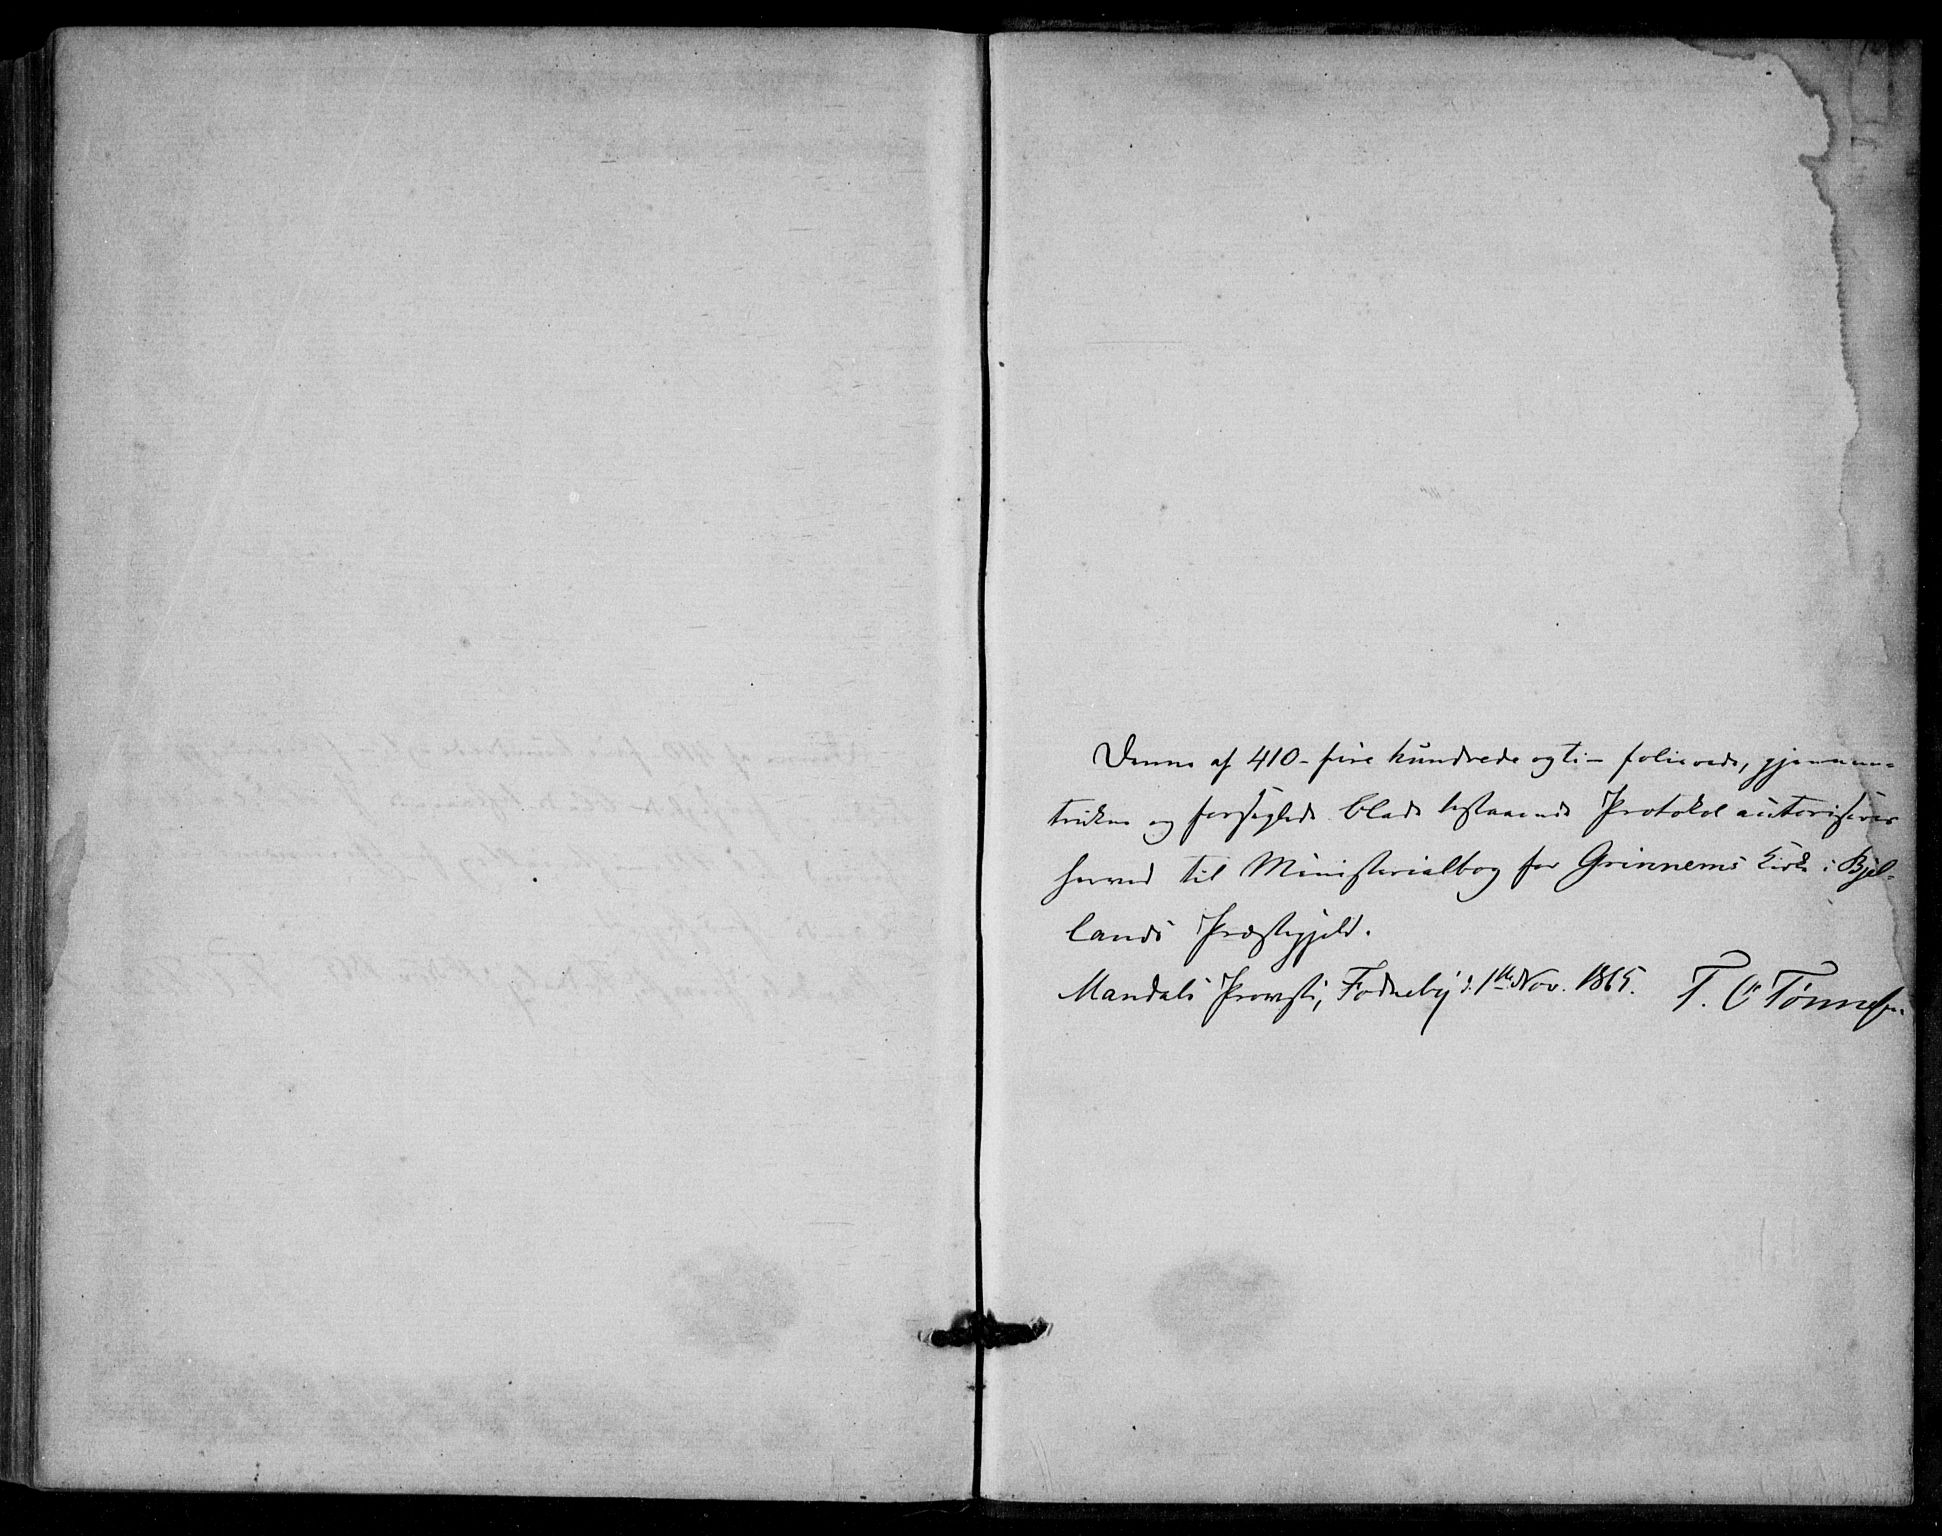 Denne af 410 - fire hundrede og ti - folierede, gjennem-
trukne og forseglede blade bestaaende Protokol autoriseres
herved til Ministerialbog for Grinnems Kirke i Bjel-
lands Præstegjeld.
Mandals Provsti, Fodneby d. 1ste Nov. 1865. T. O Tønnessen